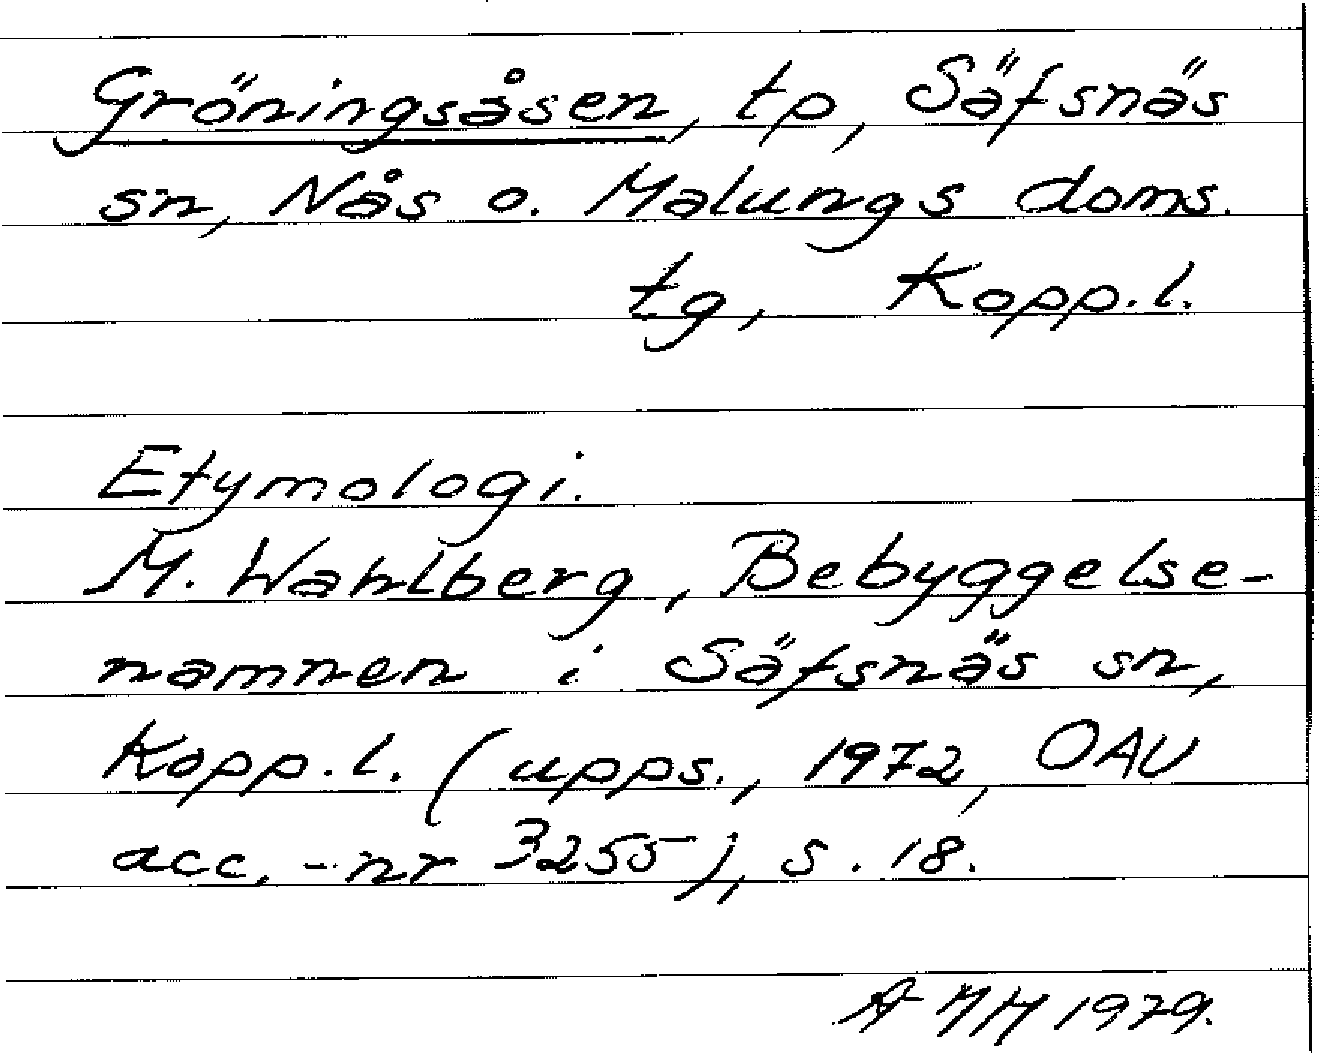 Gröningsåsen, tp, Säfsnäs
sn, Nås o. Malungs doms.
tg, Kopp.l.
Etymologi.
M. Wahlberg, Bebyggelse-
namnen i Säfsnäs sn,
Kopp.l. (upps., 1972, OAU
acc.-nr 3255), s. 18.
A MH 1979.